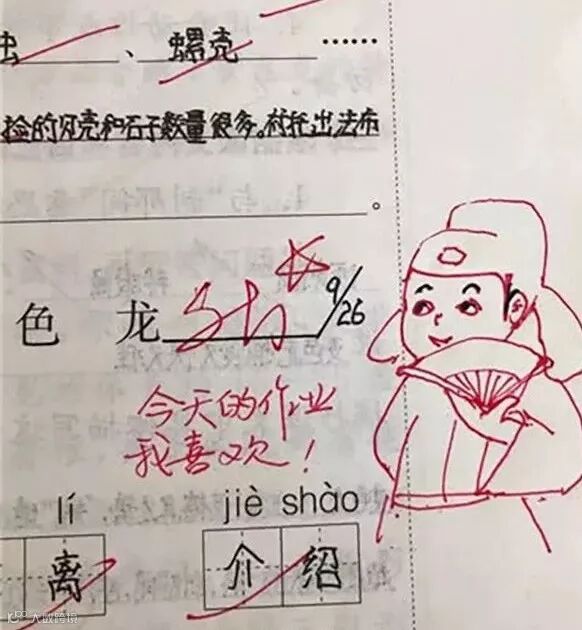 虫、螺壳……
捡的贝壳和石子数量很多。衬托出法布
。
色 龙 好 9/26
今天的作业
我喜欢!
lí jiè shào
离 介绍
大数跨境